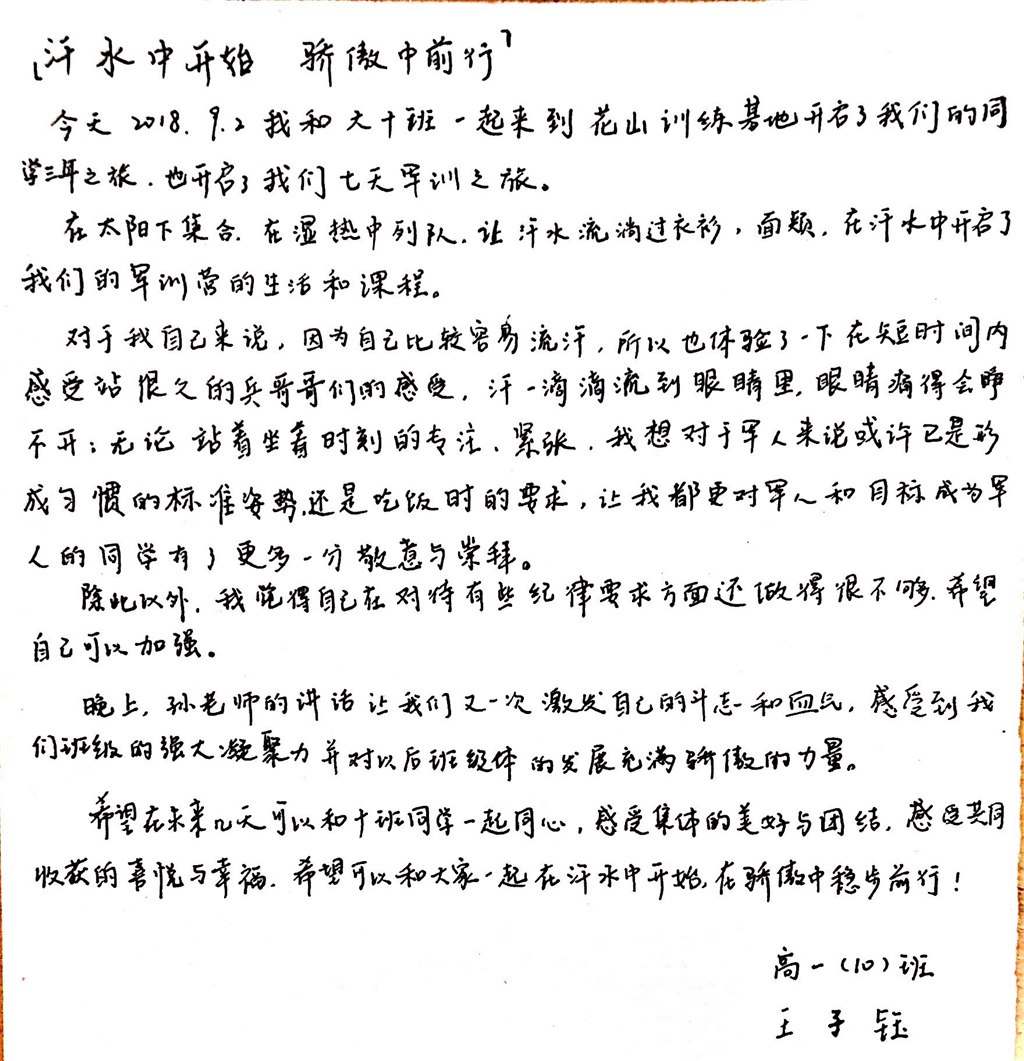 「汗水中开始 骄傲中前行」
今天2018.9.2我和大十班一起来到花山训练基地开启了我们的同
学三年之旅.也开启了我们七天军训之旅。
在太阳下集合.在湿热中列队.让汗水流淌过衣衫，面颊.在汗水中开启了
我们的军训营的生活和课程。
对于我自己来说，因为自己比较容易流汗，所以也体验了一下在短时间内
感受站很久的兵哥哥们的感受，汗一滴滴流到眼睛里.眼睛痛得会睁
不开；无论站着坐着时刻的专注、紧张.我想对于军人来说或许已是形
成习惯的标准姿势.还是吃饭时的要求，让我都更对军人和目标成为军
人的同学有了更多一分敬意与崇拜。
除此以外.我觉得自己在对待有些纪律要求方面还做得很不够.希望
自己可以加强。
晚上.孙老师的讲话让我们又一次激发自己的斗志和血气，感受到我
们班级的强大凝聚力并对以后班级体的发展充满骄傲的力量。
希望在未来几天可以和十班同学一起同心，感受集体的美好与团结.感受共同
收获的喜悦与幸福.希望可以和大家一起在汗水中开始.在骄傲中稳步前行！
高一(10)班
王子钰